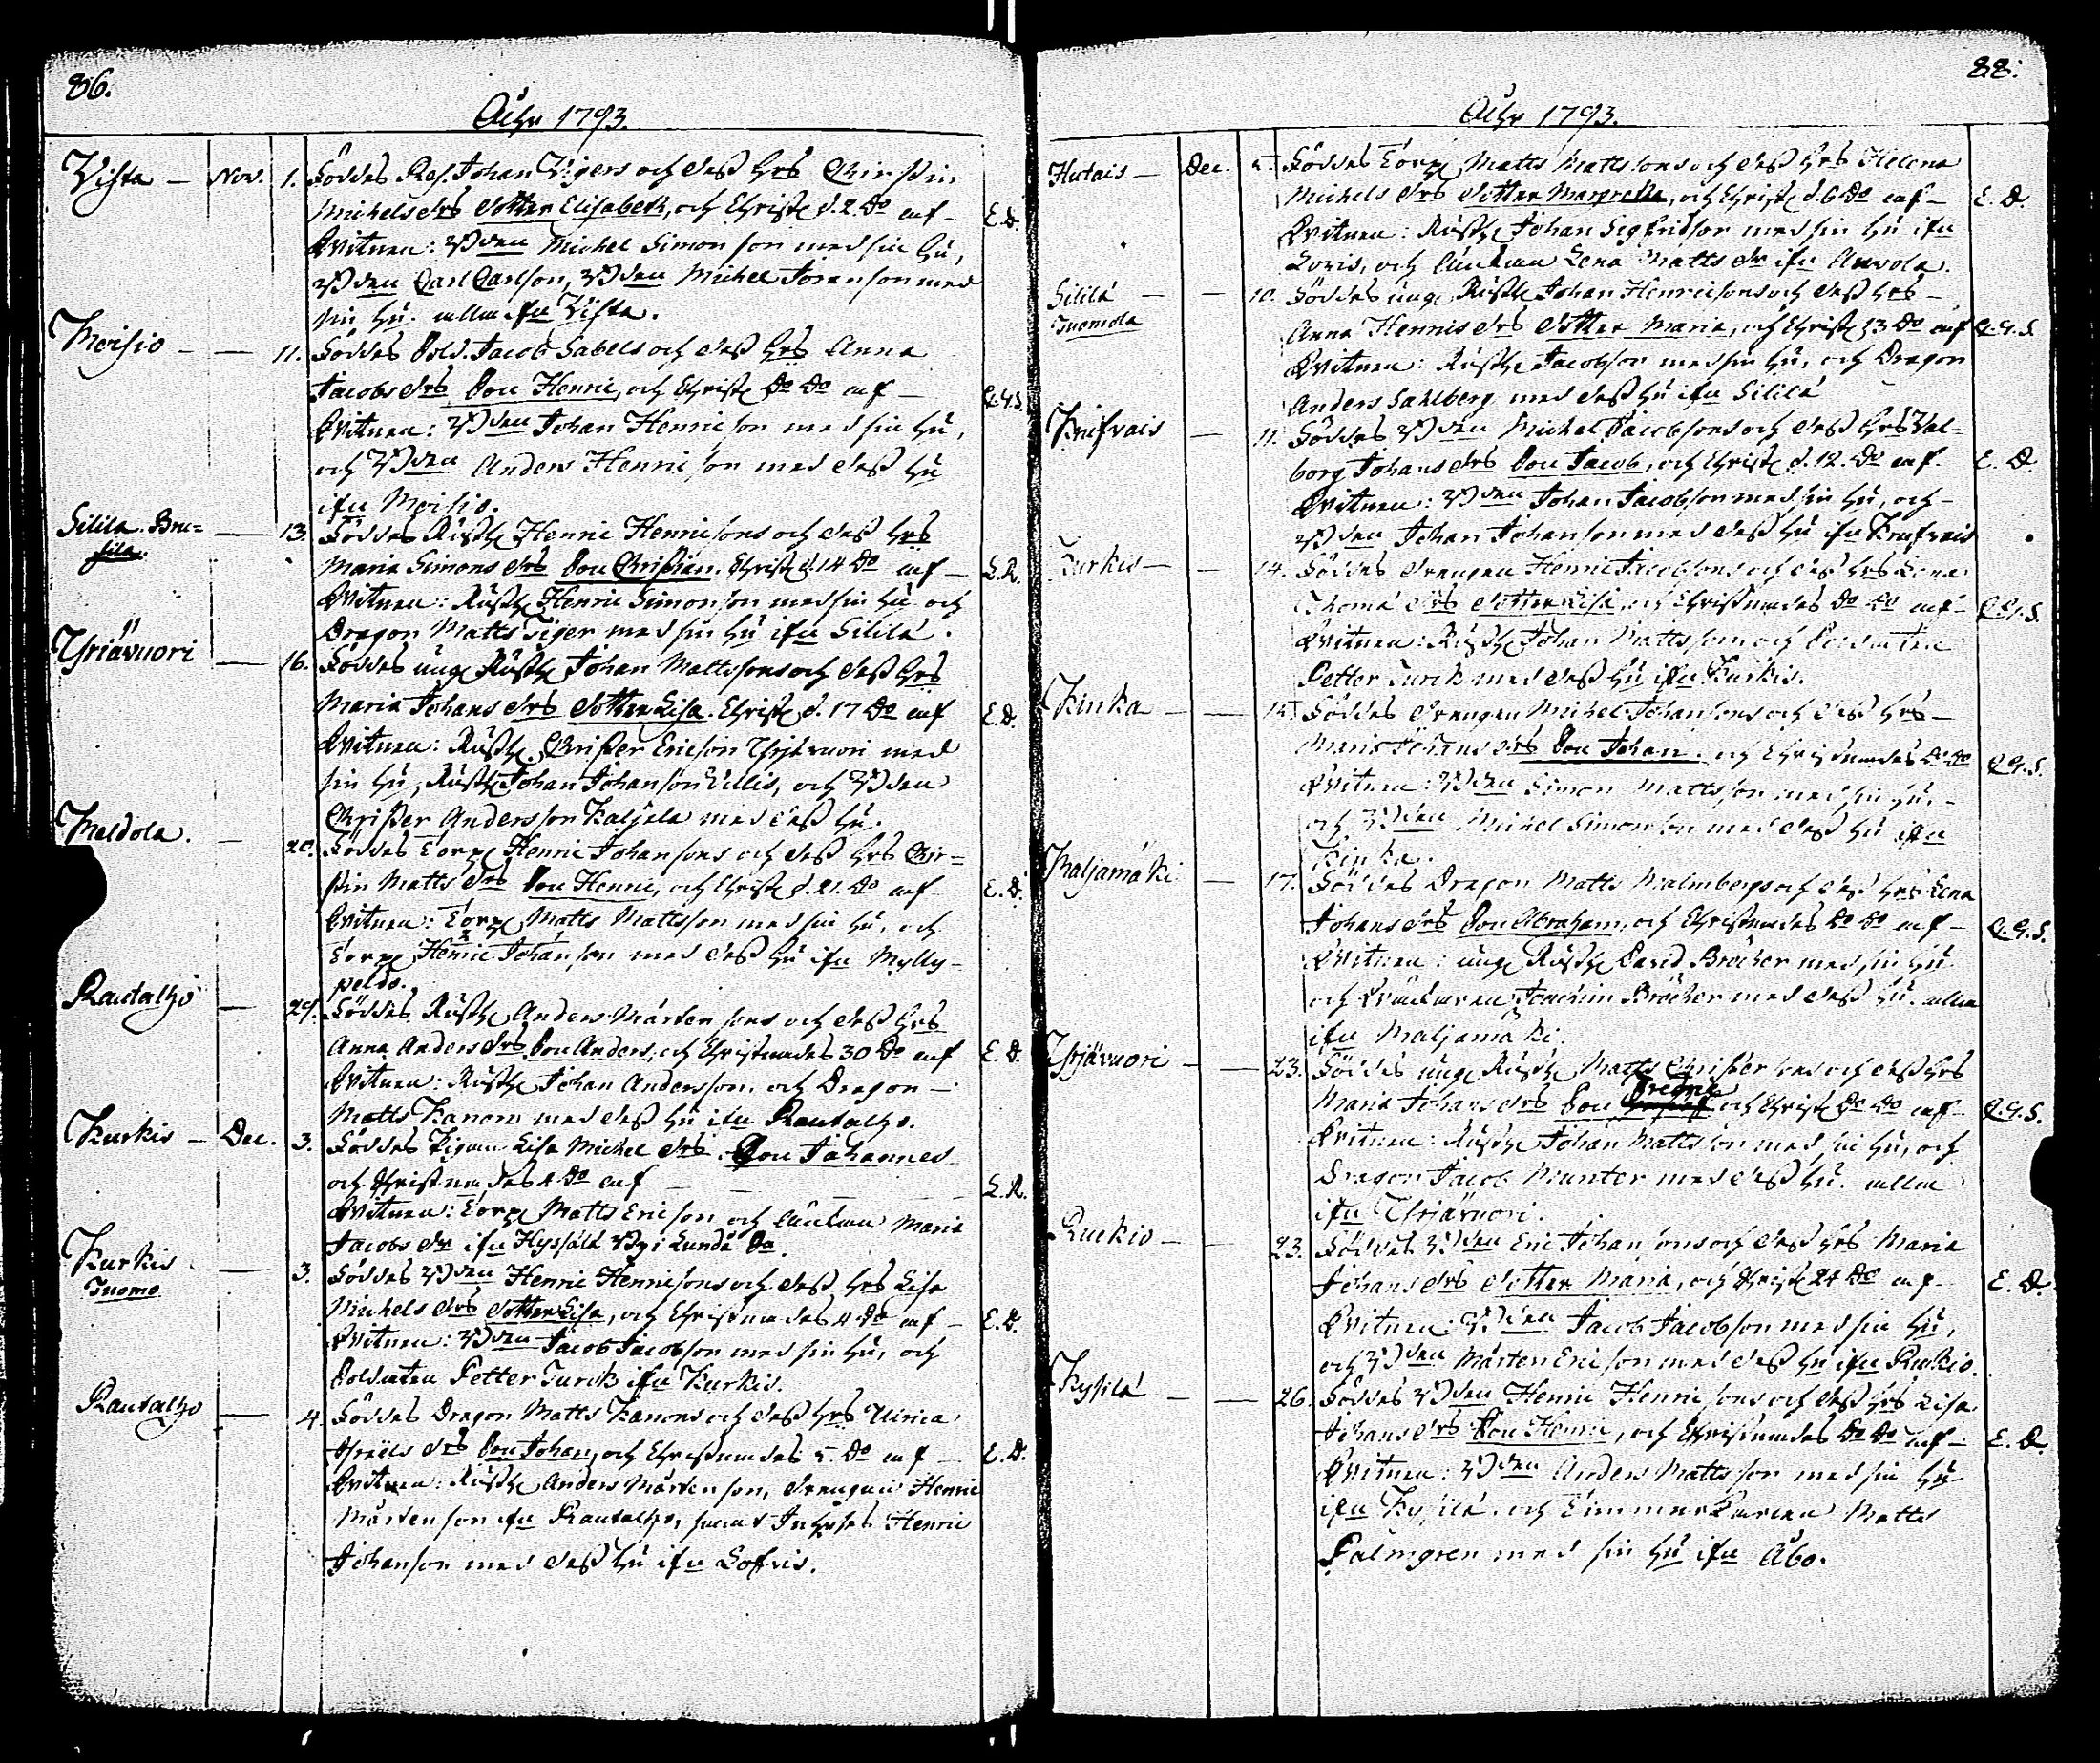 86.
Åhr 1793.
Vista — Nov. 1. Föddes Res. Johan Vigers och dess hrs Chirstin
Michels drs dotter Elisabeth, och Christ d. 2. do af — E. D.
Vitnen: Bden Michel Simonson med sin hu,
Bden Carl Carlson, Bden Michel Jöranson med
sin hu. alla ifn Vista.
Moisio — — 11. Föddes Sold. Jacob Sabels och dess hrs Anna
Jacobs drs Son Henric, och Christ do do af — Q.G.S.
Vitnen: Bden Johan Henricson med sin hu,
och Bden Anders Henricson med dess hu
ifn Moisio.
Sillilä. Bru=
sila. — 13. Föddes Rusth Henric Henricsons och dess hrs
Maria Simons drs Son Christian. Christ d. 14 do af — E. R.
Vitnen: Rusth Henric Simonson med sin hu och
Dragon Matts Tiger med sin hu ifn Sillilä.
Yhriävuori — 16. Föddes ung Rusth Johan Mattssons och dess hrs
Maria Johans drs dotter Lisa. Christ d. 17 do af E. D.
Vitnen: Rusth Christer Ericson Yhrjävuori med
sin hu, Rusth Johan Johanson Tillis, och Bden
Christer Andersson Kaljala med dess hu.
Meldola. — 20. Föddes Torp Henric Johansons och dess hrs Chir=
stin Matts drs Son Henric, och Christ d. 21. do af E. D.
Vitnen: Torp Matts Mattsson med sin hu, och
Torp Henric Johanson med dess hu ifn Mylly-
peldo.
Rautalho — 29. Föddes Rusth Anders Mårtensons och dess hrs
Anna Anders drs Son Anders, och Christnades 30 do af E. D.
Vitnen: Rusth Johan Andersson, och Dragon —
Matts Kanon med dess hu ifn Rautalho.
Kurkis — Dec. 3. Föddes Pigan Lisa Michels drs Son Johannes
och Christnades 4 do af — E. R.
Vitnen: Torp Matts Ericson och Enkan Maria
Jacobs dr ifn Hyssälä By i Lundo
Kurkis
Tuomo — 3. Föddes Bden Henric Henricsons och dess hrs Lisa
Michels drs dotter Lisa, och Christnades 4 do af — E. D.
Vitnen: Bden Jacob Jacobson med sin hu, och
Soldaten Petter Turck ifn Kurkis.
Rautalho — 4. Föddes Dragon Matts Kanons och dess hrs Ulrica
drs Son Johan, och Christnades 5. do af — E. D.
Vitnen: Rusth Anders Mårtenson, drengen Henric
Mårtenson ifn Rautalho, samt Inhyses Henric
Johanson med dess hu ifn Lofvis.
88.
Åhr 1793.
Hutais — Dec. 5. Föddes Torp Matts Mattssons och dess hrs Helena
Michels drs dotter Margreta, och Christ d. 6 do af — E. D.
Vitnen: Rusth Johan Sigfridson med sin hu ifn
Loris, och Enkan Lena Matts dr ifn Auvola.
Sillilä
Tuomola — — 10. Föddes ung Rusth Johan Henricsons och dess hrs —
Anna Henrics drs dotter Maria, och Christ 13 do af Q.G.S.
Vitnen: Rusth Jacobson med sin hu, och Dragon
Anders Sahlberg med dess hu ifn Sillilä
Knifvais — 11. Föddes Bden Michel Jacobsons och dess hrs Val=
borg Johans drs Son Jacob, och Christ d. 12. do af. E. D.
Vitnen: Bden Johan Jacobson med sin hu, och —
Bden Johan Johanson med dess hu ifn Knifvais
Kurkis — — 14. Föddes drengen Henric Jacobsons och dess hrs Lena
Thomæ drs dotter Lisa, och Christnades do do af — Q.G.S.
Vitnen: Rusth Johan Mattsson och Soldaten
Petter Turck med dess hu ifn Kurkis.
Kinka — — 15. Föddes drengen Michel Johansons och dess hrs —
Maria Johans drs Son Johan. och Christnades do do Q.G.S.
Vitnen: Bden Simon Mattsson med sin hu. —
och Bden Michel Simonson med dess hu ifn
Kinka.
Maljamäki — 17. Föddes Dragon Matts Malmbergs och dess hrs Lena
Johans drs Son Abraham, och Christnades do do af — Q.G.S.
Vitnen: ung Rusth David Bröcker med sin hu
och Joachim Bröcker med dess hu. alla
ifn Maljamäki.
Yhrjävuori — — 23. Föddes ung Rusth Matts Christersons och dess hrs
Maria Johans drs Son och Christ do do af — Q.G.S.
Vitnen: Rusth Johan Mattsson med sin hu, och
Dragon Jacob Munter med dess hu. alla
ifn Yhrjävuori.
Ruckio — — 23. Föddes Bden Eric Johansons och dess hrs Maria
Johans drs dotter Maria, och Christ 24 do af — E. D.
Vitnen: Bden Jacob Jacobson med sin hu,
och Bden Mårten Ericson med dess hu ifn Ruckio.
Kysilä — — 26. Föddes Bden Henric Henricsons och dess hrs Lisa
Johans drs Son Henric, och Christnades do do af — E. D.
Vitnen: Bden Anders Mattsson med sin hu
ifn Kysilä. och Timmerkarlen Matts
Palmgren med sin hu ifn Åbo.